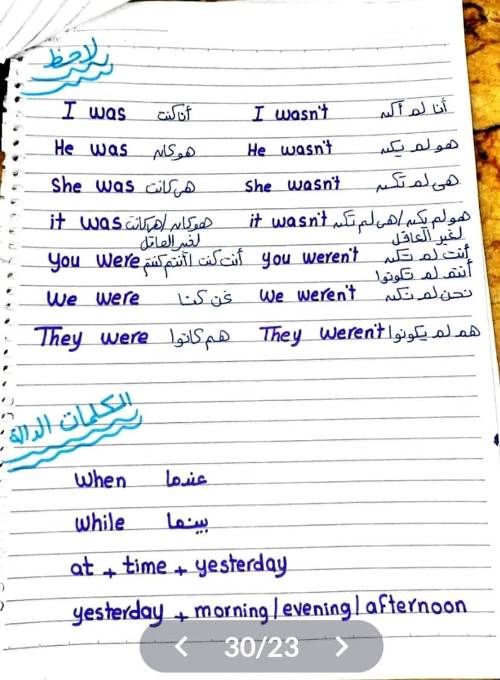 لاحظ
I was أنا كنت I wasn't أنا لم أكن
He was هو كان He wasn't هو لم يكن
She was هي كانت She wasn't هي لم تكن
it was هو كان/هي كانت it wasn't هو لم يكن/هي لم تكن
لغير العاقل لغير العاقل
you were أنت كنت/أنتم كنتم you weren't أنت لم تكن
أنتم لم تكونوا
We were نحن كنا We weren't نحن لم نكن
They were هم كانوا They weren't هم لم يكونوا
الكلمات الدالة
when عندما
while بينما
at + time + yesterday
yesterday + morning/evening/afternoon
< 30/23 >